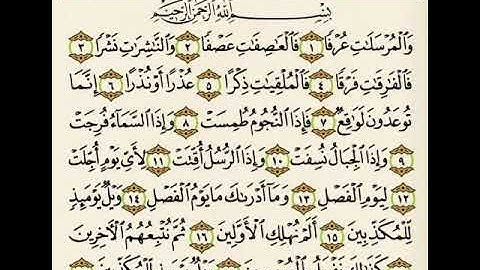 بِسْمِ اللَّهِ الرَّحْمَٰنِ الرَّحِيمِ
وَالْمُرْسَلَاتِ عُرْفًا ١ فَالْعَاصِفَاتِ عَصْفًا ٢ وَالنَّاشِرَاتِ نَشْرًا ٣
فَالْفَارِقَاتِ فَرْقًا ٤ فَالْمُلْقِيَاتِ ذِكْرًا ٥ عُذْرًا أَوْ نُذْرًا ٦ إِنَّمَا
تُوعَدُونَ لَوَاقِعٌ ٧ فَإِذَا النُّجُومُ طُمِسَتْ ٨ وَإِذَا السَّمَاءُ فُرِجَتْ
٩ وَإِذَا الْجِبَالُ نُسِفَتْ ١٠ وَإِذَا الرُّسُلُ أُقِّتَتْ ١١ لِأَيِّ يَوْمٍ أُجِّلَتْ
١٢ لِيَوْمِ الْفَصْلِ ١٣ وَمَا أَدْرَاكَ مَا يَوْمُ الْفَصْلِ ١٤ وَيْلٌ يَوْمَئِذٍ
لِلْمُكَذِّبِينَ ١٥ أَلَمْ نُهْلِكِ الْأَوَّلِينَ ١٦ ثُمَّ نُتْبِعُهُمُ الْآخِرِينَ